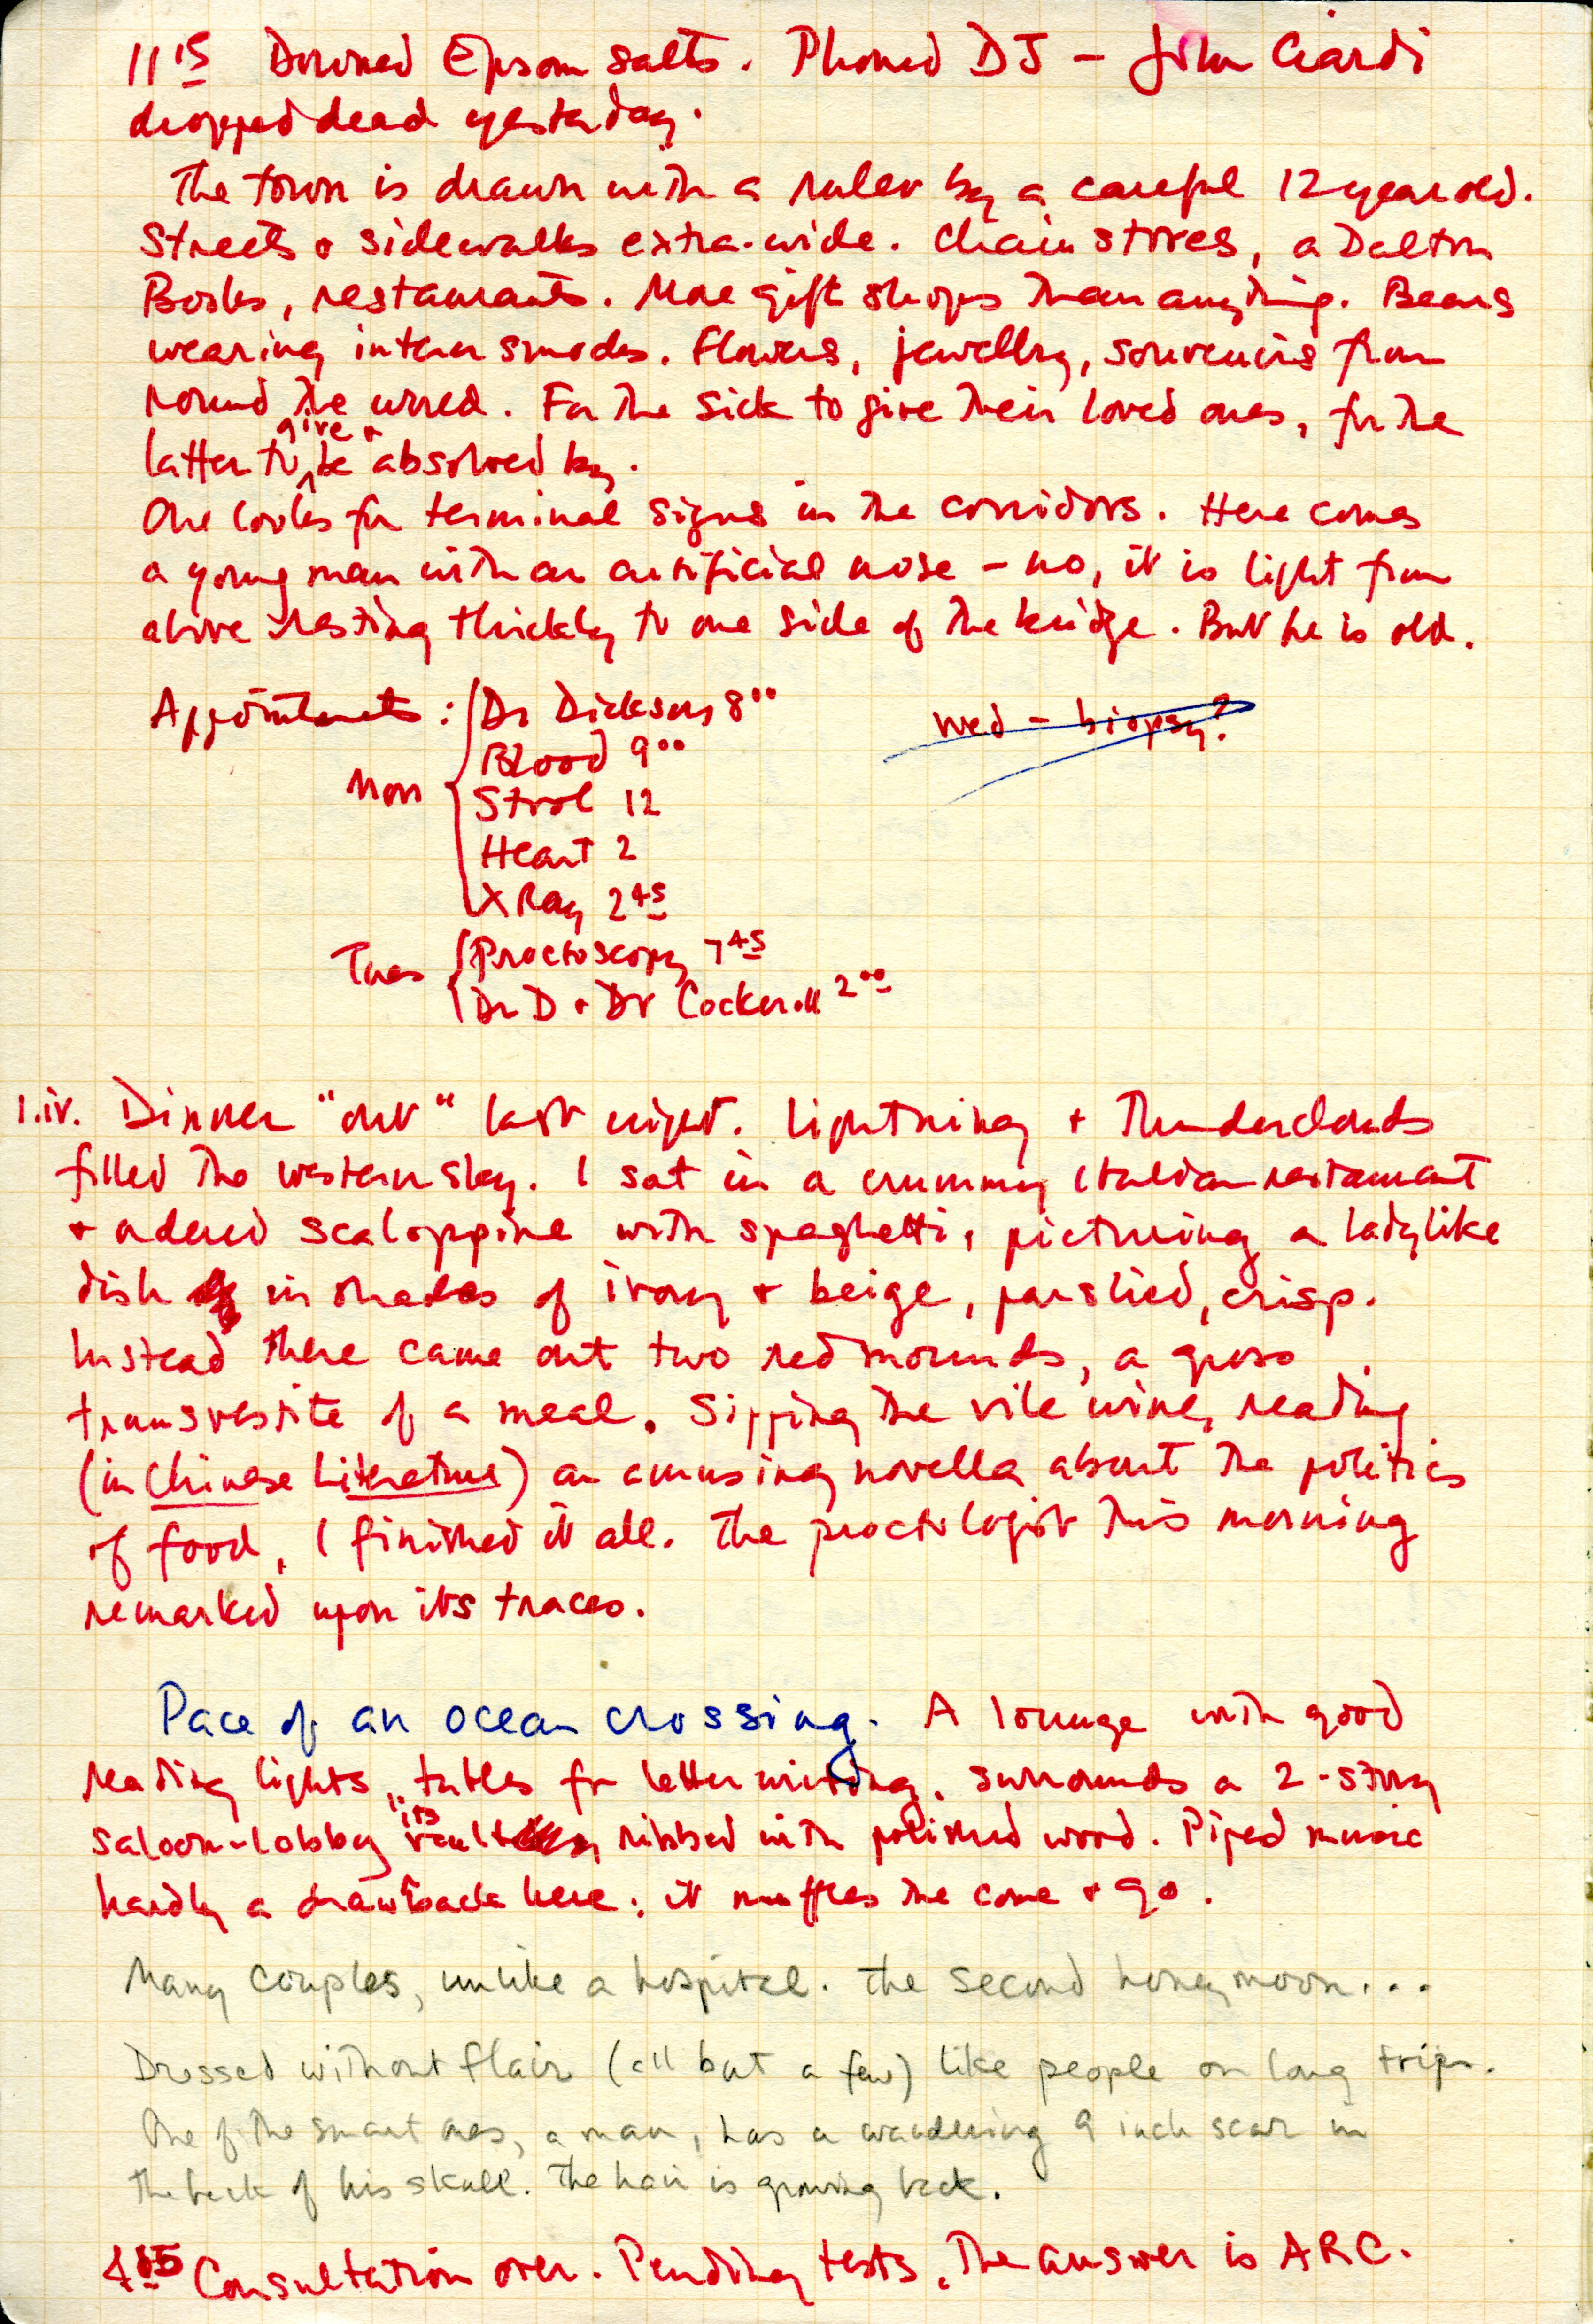 11 15 Downed Epsom salts. Phoned DJ – John Ciardi
dropped dead yesterday.
The town is drawn with a ruler by a careful 12 year old.
Streets + sidewalks extra-wide. Chain stores, a Dalton
Books, restaurants. More gift shops than anything. Bears
wearing intern smocks. Flowers, jewellry, souvenirs from
round the world. For the sick to give their loved ones, for the
latter to give + be absolved by.
One looks for terminal signs in the corridors. Here comes
a young man with an artificial nose – no, it is light from
above resting thickly to one side of the bridge. But he is old.
Appointments: Dr Dickson 8 00
Wed – biopsy?
Blood 9 00
Mon
Stool 12
Heart 2
X Ray 2 45
Tues Proctoscopy 7 45
Dr D + Dr Cockerill 2 00
1.iv. Dinner "out" last night. Lightning + thunderclouds
filled the western sky. I sat in a crummy Italian restaurant
+ ordered scaloppine with spaghetti, picturing a ladylike
dish in shades of ivory + beige, parslied, crisp.
Instead there came out two red mounds, a gross
transvestite of a meal. Sipping the vile wine, reading
(in Chinese Literature) an amusing novella about the politics
of food, I finished it all. The proctologist this morning
remarked upon its traces.
Pace of an ocean crossing. A lounge with good
reading lights, tables for letter writing, surrounds a 2-story
saloon-lobby, its vault ribbed with polished wood. Piped music
hardly a drawback here: it muffles the come + go.
Many couples, unlike a hospital. The second honeymoon...
Dressed without flair (all but a few) like people on long trips.
One of the smart ones, a man, has a wandering 9 inch scar in
the back of his skull. The hair is growing back.
Consultation over. Pending tests, the answer is ARC.